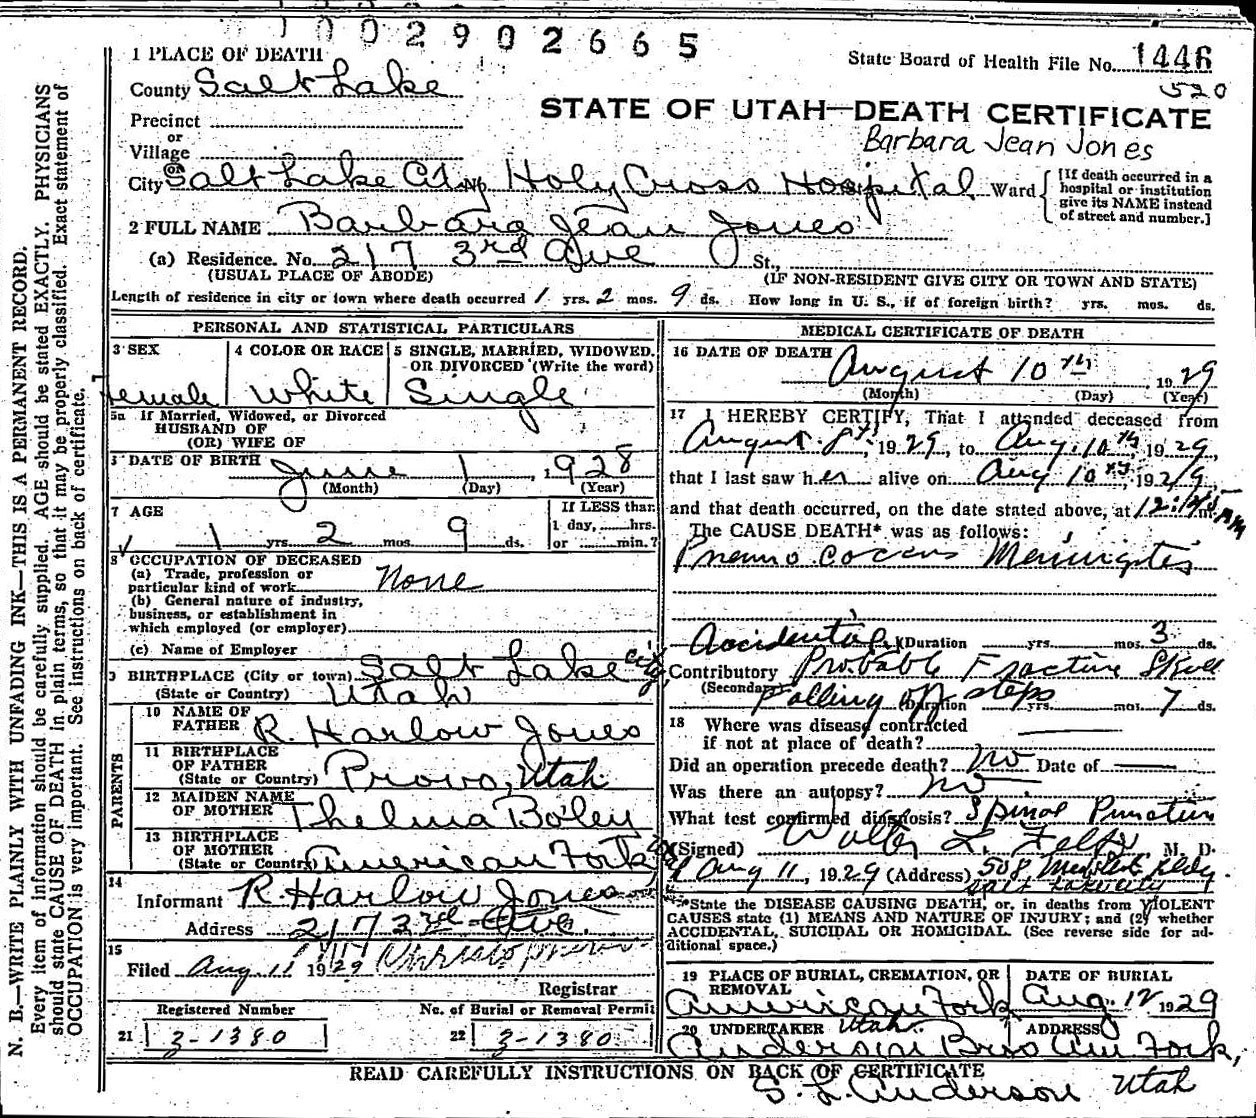 1002902665
1 PLACE OF DEATH
State Board of Health File No. 1446
County Salt Lake
520
STATE OF UTAH—DEATH CERTIFICATE
Precinct
or
Barbara Jean Jones
Village
or
City Salt Lake City No. Holy Cross Hospital Ward
[If death occurred in a
hospital or institution
give its NAME instead
of street and number.]
2 FULL NAME Barbara Jean Jones
(a) Residence. No. 217 3rd Ave St.,
(USUAL PLACE OF ABODE) (IF NON-RESIDENT GIVE CITY OR TOWN AND STATE)
Length of residence in city or town where death occurred 1 yrs. 2 mos. 9 ds. How long in U. S., if of foreign birth? yrs. mos. ds.
PERSONAL AND STATISTICAL PARTICULARS
3 SEX
Female
4 COLOR OR RACE
White
5 SINGLE, MARRIED, WIDOWED,
OR DIVORCED (Write the word)
Single
5a If Married, Widowed, or Divorced
HUSBAND OF
(OR) WIFE OF
DATE OF BIRTH June 1, 1928
(Month) (Day) (Year)
7 AGE
1 yrs. 2 mos. 9 ds.
If LESS than
1 day, hrs.
or min.?
8 OCCUPATION OF DECEASED
(a) Trade, profession or
particular kind of work None
(b) General nature of industry,
business, or establishment in
which employed (or employer)
(c) Name of Employer
9 BIRTHPLACE (City or town) Salt Lake City,
(State or Country) Utah
PARENTS
10 NAME OF
FATHER R. Harlow Jones
11 BIRTHPLACE
OF FATHER
(State or Country) Provo, Utah
12 MAIDEN NAME
OF MOTHER Thelma Boley
13 BIRTHPLACE
OF MOTHER
(State or Country) American Fork
14
Informant R. Harlow Jones
Address 217 3rd Ave.
15
Filed Aug. 11 1929
Registrar
Registered Number No. of Burial or Removal Permit
21 3-1380 22 3-1380
MEDICAL CERTIFICATE OF DEATH
16 DATE OF DEATH
August 10th, 1929
(Month) (Day) (Year)
17 I HEREBY CERTIFY, That I attended deceased from
August 8th, 1929, to Aug. 10th, 1929,
that I last saw her alive on Aug 10th, 1929,
and that death occurred, on the date stated above, at 12:45 m.
The CAUSE DEATH* was as follows:
Pneumo coccus Meningitis
Accidental (Duration yrs. mos. 3 ds.
Contributory Probable Fracture Skull
(Secondary) Falling off steps
(Duration yrs. mos. 7 ds.
18 Where was disease contracted
if not at place of death?
Did an operation precede death? No Date of
Was there an autopsy? No
What test confirmed diagnosis? Spinal Puncture
(Signed) Walter L. M. D.
Aug 11, 1929 (Address) 508 Bldg
Salt Lake City
*State the DISEASE CAUSING DEATH, or, in deaths from VIOLENT
CAUSES state (1) MEANS AND NATURE OF INJURY; and (2) whether
ACCIDENTAL, SUICIDAL OR HOMICIDAL. (See reverse side for ad-
ditional space.)
19 PLACE OF BURIAL, CREMATION, OR
REMOVAL
American Fork
Utah
DATE OF BURIAL
Aug. 12 1929
20 UNDERTAKER ADDRESS
Anderson Bros Am Fork,
S. L. Anderson Utah
READ CAREFULLY INSTRUCTIONS ON BACK OF CERTIFICATE
N. B.—WRITE PLAINLY WITH UNFADING INK—THIS IS A PERMANENT RECORD.
Every item of information should be carefully supplied. AGE should be stated EXACTLY. PHYSICIANS
should state CAUSE OF DEATH in plain terms, so that it may be properly classified. Exact statement of
OCCUPATION is very important. See instructions on back of certificate.